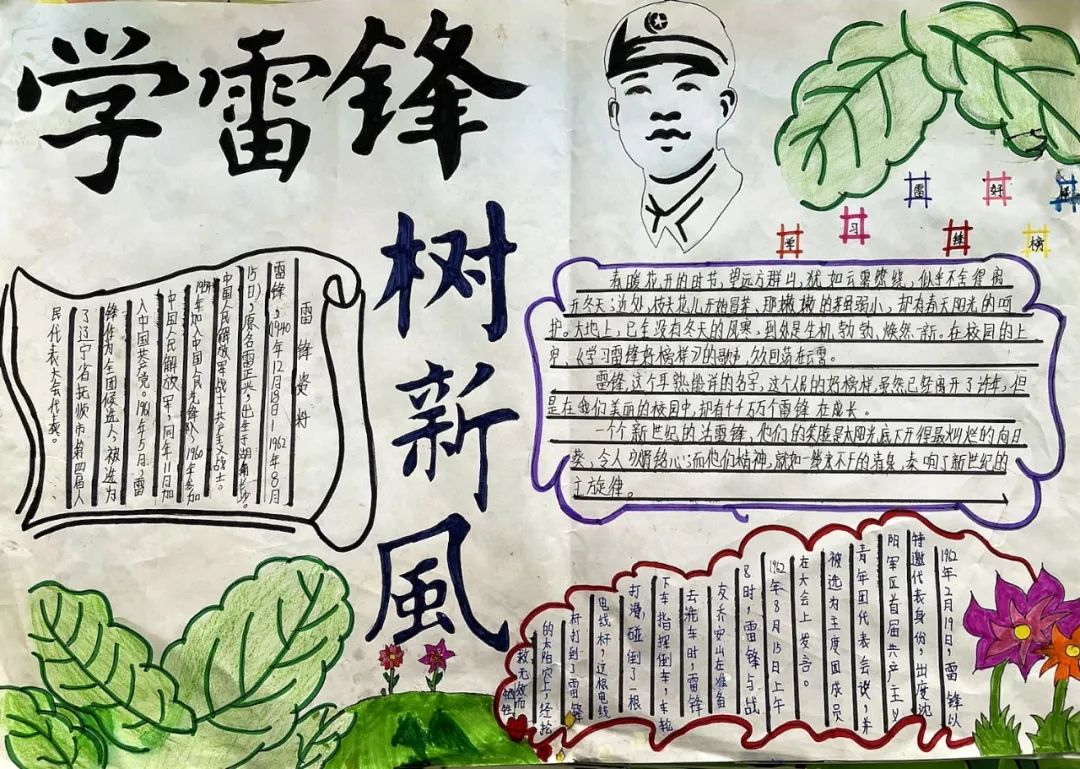 学雷锋
树新風
学习雷好榜
雷锋资料
雷锋,1940年12月18日-1962年8月
15日),原名雷正兴,出生于湖南长沙。
中国人民解放军战士,共产主义战士。
1954年加入中国少年先锋队,1960年参加
中国人民解放军,同年11月加
入中国共产党。1961年5月,雷
锋作为全团候选人,被选为
了辽宁省抚顺市第四届人
民代表大会代表。
春暖花开的时节,望远方群山,犹如云雾燎绕,似乎不舍得离
开冬天;近处,枝头花儿开始冒芽,那嫩嫩的弱小,却有春天阳光的呵
护。大地上,已车没有冬天的风寒,到处是生机勃勃,焕然一新。在校园的上
空,《学习雷锋好榜样》的歌声,久久回荡在云霄。
雷锋,这个耳熟能详的名字,这个人民的好榜样虽然已经离开了许年,但
是在我们美丽的校园中,却有千千万万个雷锋在成长。
一个个新世纪的活雷锋,他们的笑脸是太阳光底下开得最灿烂的向日
葵,令人刻骨铭心;而他们精神,就如一线穿不断的清泉,奏响了新世纪的
主旋律。
1962年2月19日,雷锋以
特邀代表身份,出度沈
阳军区首届共产主义
青年团代表会议,未
被选为主度团成员
在大会上发言。
1962年8月15日上午
8时,雷锋与战
友乔安山在准备
去洗车时,雷锋
下车指挥倒车,车轮
打滑,碰倒了一根
电线杆,这根电线
杆打到了雷锋
的太阳穴上,经抢
救无效而
牺牲